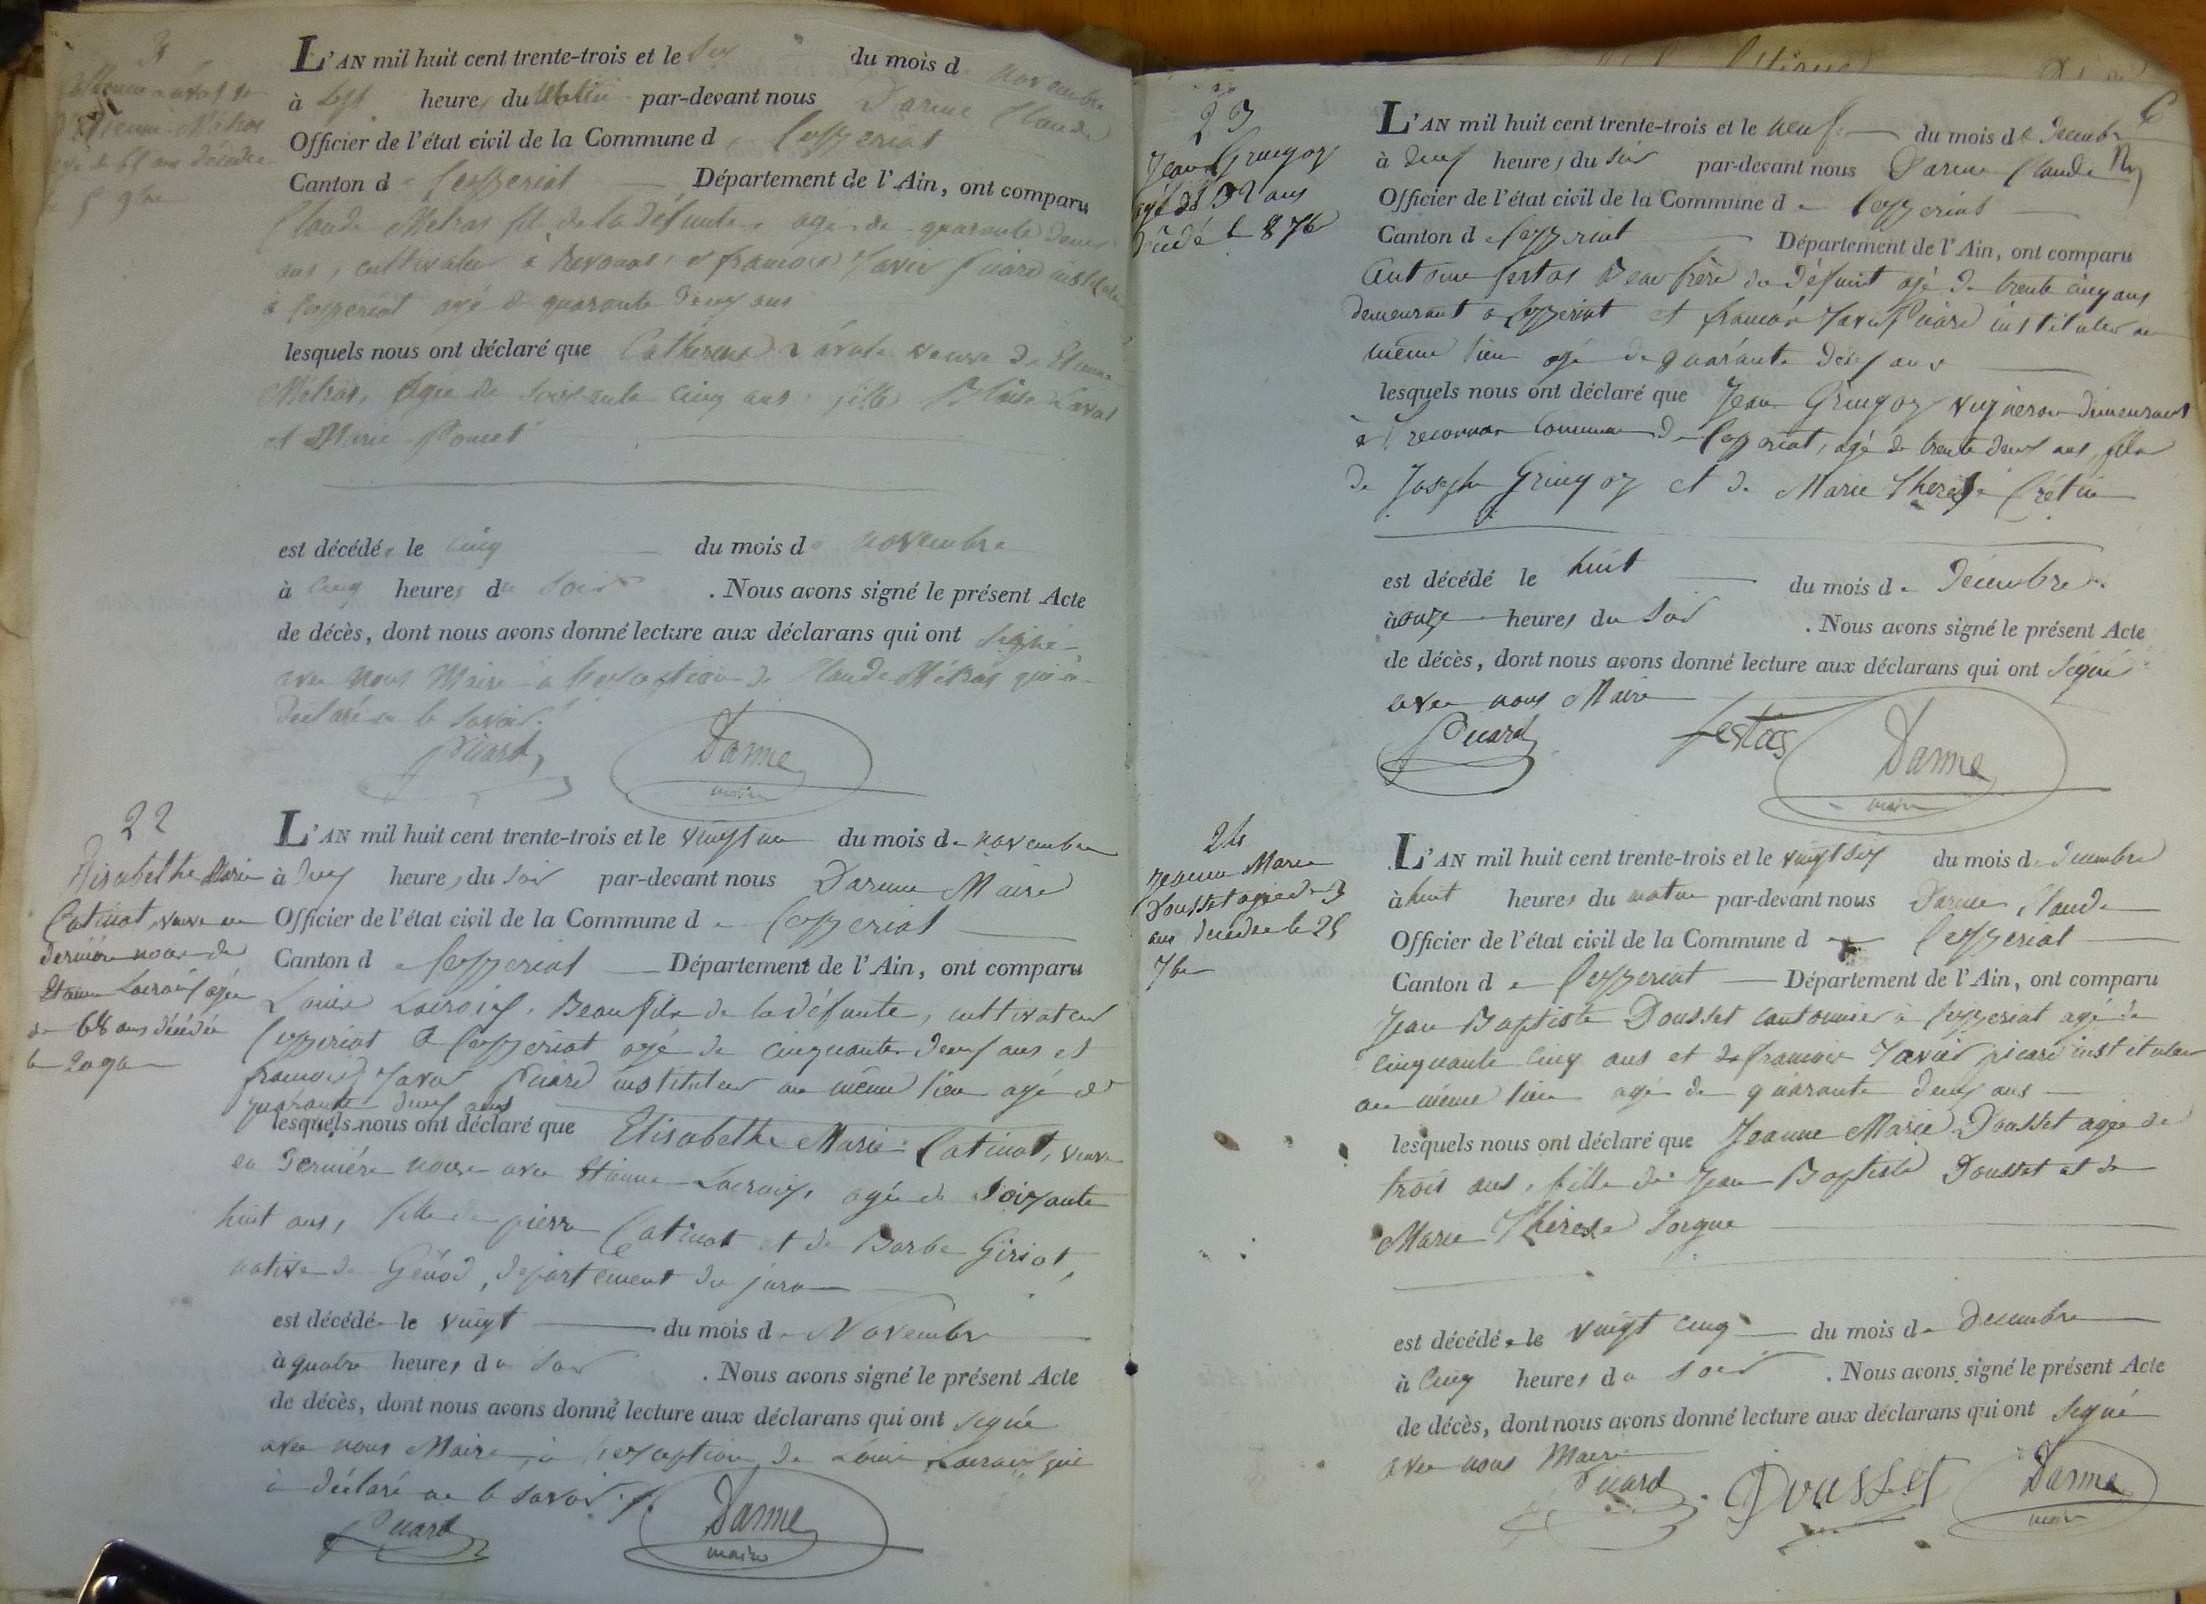 L'AN mil huit cent trente-trois et le six du mois de novembre
à sept heures du matin par-devant nous Darme Claude
Officier de l'état civil de la Commune d Ceyzeriat
Canton de Ceyzeriat Département de l'Ain, ont comparu
Claude Metras fils de la défunte agé de quarante deux
ans, cultivateur à Revonas, et françois Xavier Picard instituteur
à Ceyzeriat agé de quarante deux ans
lesquels nous ont déclaré que Catherine veuve de Etienne
Metras, agée de soixante cinq ans fille
et Marie Poncet
est décédée le cinq du mois de novembre
à cinq heures du soir . Nous avons signé le présent Acte
de décès, dont nous avons donné lecture aux déclarans qui ont signé
avec nous Maire à l'exception de Claude Métras qui à
déclaré ne le savoir.
Picard Darme
maire
22
Elisabethe Marie
Catinat, veuve en
dernière noce de
Etienne Lacroix agée
de 68 ans décédée
le 20 9bre
L'AN mil huit cent trente-trois et le vingt un du mois de novembre
à deux heures du soir par-devant nous Darme Maire
Officier de l'état civil de la Commune de Ceyzeriat
Canton de Ceyzeriat Département de l'Ain, ont comparu
Louis Lacroix, Beau fils de la défunte, cultivateur
Ceyzeriat à Ceyzeriat agé de cinquante deux ans et
françois Xavier Picard instituteur au même lieu agé de
quarante deux ans
lesquels nous ont déclaré que Elisabethe Marie Catinat, veuve
en dernière noce avec Etienne Lacroix, agée de soixante
huit ans, fille de pierre Catinat et de Barbe Giriat,
native de Génod, département du jura
est décédée le vingt du mois de Novembre
à quatre heures du soir . Nous avons signé le présent Acte
de décès, dont nous avons donné lecture aux déclarans qui ont signé
avec nous Maire, à l'exception de Louis Lacroix qui
à déclaré ne le savoir.
Picard Darme
maire
6
23
Jean Gringoz
agé de 32 ans
décédé le 8 Xbre
L'AN mil huit cent trente-trois et le neuf du mois de Decembre
à deux heures du soir par-devant nous Darme Claude
Officier de l'état civil de la Commune de Ceyzeriat
Canton de Ceyzeriat Département de l'Ain, ont comparu
Antoine festas Beau frère du défunt agé de trente cinq ans
demeurant à Ceyzeriat et francois Xavier Picard instituteur au
même lieu agé de quarante deux ans
lesquels nous ont déclaré que Jean Gringoz vigneron demeurant
à commune de Ceyzeriat, agé de trente deux ans, fils
de Joseph Gringoz et de Marie Therese Crétin
est décédé le huit du mois de Décembre
à onze heures du soir . Nous avons signé le présent Acte
de décès, dont nous avons donné lecture aux déclarans qui ont signé
avec nous Maire
Picard festas Darme
maire
24
Jeanne Marie
Dousset agée de 3
ans décédée le 25
Xbre
L'AN mil huit cent trente-trois et le vingt six du mois de decembre
à huit heures du matin par-devant nous Darme Claude
Officier de l'état civil de la Commune de Ceyzeriat
Canton de Ceyzeriat Département de l'Ain, ont comparu
Jean Baptiste Dousset cantonnier à Ceyzeriat agé de
cinquante cinq ans et de francois Xavier picard instituteur
au même lieu agé de quarante deux ans
lesquels nous ont déclaré que Jeanne Marie Dousset agée de
trois ans, fille de Jean Baptiste Dousset et de
Marie Thérese Sorgue
est décédée le vingt cinq du mois de Decembre
à cinq heures du soir . Nous avons signé le présent Acte
de décès, dont nous avons donné lecture aux déclarans qui ont signé
avec nous Maire
Picard Dousset Darme
maire